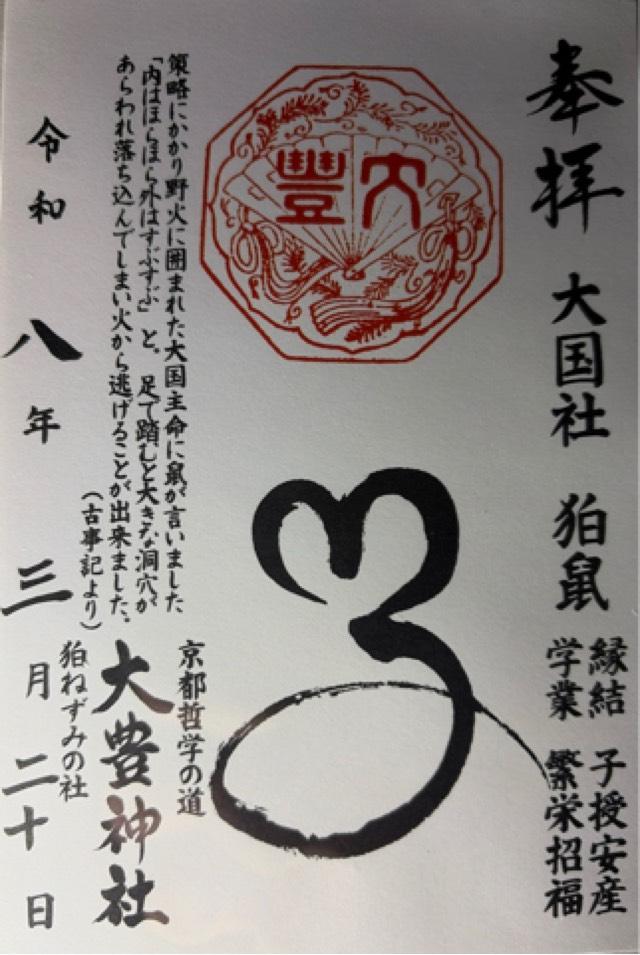 奉拝 大国社 狛鼠
縁結 子授安産
学業 繁栄招福
大豐
策略にかかり野火に囲まれた大国主命に鼠が言いました
「内はほらほら外はすぶすぶ」と。足で踏むと大きな洞穴が
あらわれ落ち込んでしまい火から逃げることが出来ました。
(古事記より)
京都哲学の道
大豊神社
狛ねずみの社
令和八年三月二十日